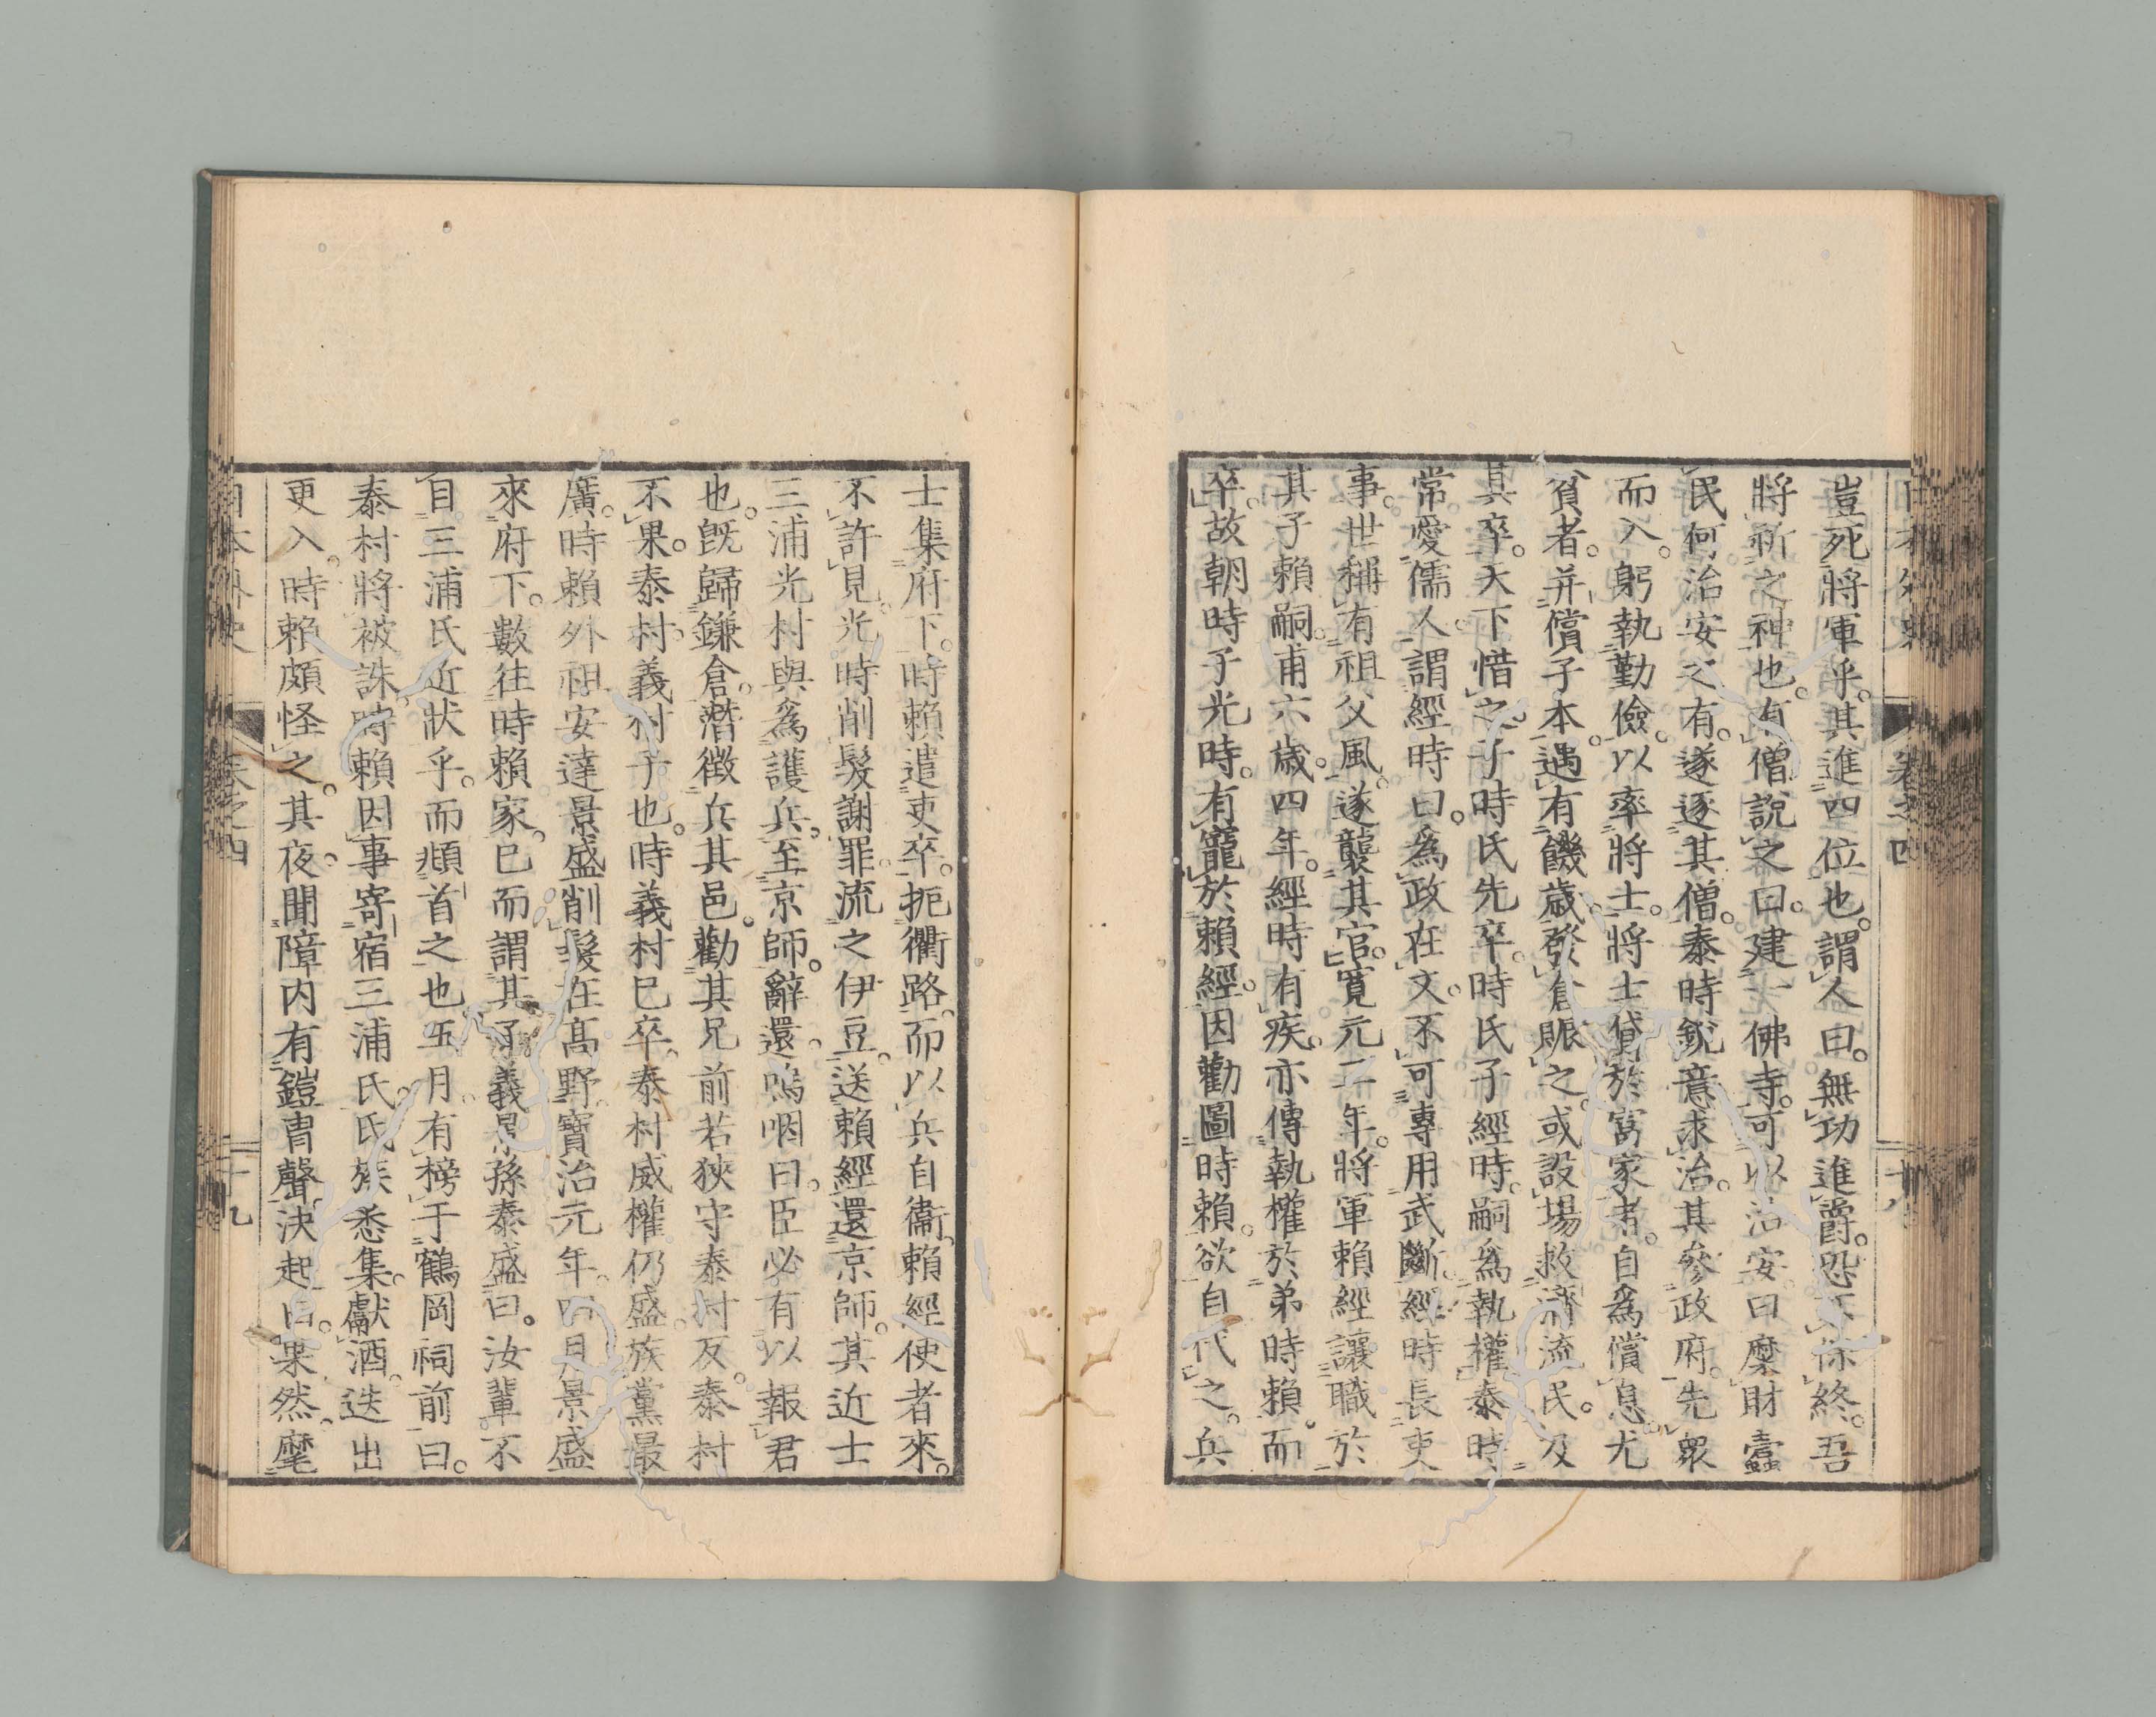 豈死將軍乎。其進四位也。謂人曰。無功進爵。恐不保終。吾
將祈之神也。有僧說之曰。建一佛寺。可以治安。曰糜財蠹
民。何治安之有。遂逐其僧。泰時銳意求治。其參政府。先衆
而入。躬執勤儉。以率將士。將士貸於富家者。自爲償息。尤
貧者。并償子本。遇有饑歲。發倉賑之。或設場救濟流民。及
其卒。天下惜之。子時氏先卒。時氏子經時。嗣爲執權。泰時
常愛儒人。謂經時曰。爲政在文。不可專用武斷。經時長吏
事。世稱有祖父風。遂襲其官。寬元二年。將軍賴經讓職於
其子賴嗣。甫六歲。四年。經時有疾。亦傳執權於弟時賴。而
卒。故朝時子光時。有寵於賴經。因勸圖時賴。欲自代之。兵
日本外史 卷之四 十八
士集府下。時賴遣吏卒。扼衢路。而以兵自衞。賴經使者來。
不許見。光時削髮謝罪。流之伊豆。送賴經還京師。其近士
三浦光村與爲護兵。至京師。辭還。嗚咽曰。臣必有以報君
也。既歸鎌倉。潛徵兵其邑。勸其兄前若狹守泰村反。泰村
不果。泰村。義村子也。時義村已卒。泰村威權仍盛。族黨最
廣。時賴外祖安達景盛削髮在高野。寶治元年。四月。景盛
來府下。數往時賴家。已而謂其子義景孫泰盛曰。汝輩不
自三浦氏近狀乎。而頫首之也。五月。有榜于鶴岡祠前曰。
泰村將被誅。時賴因事寄宿三浦氏。氏族悉集。獻酒。迭出
更入。時賴頗怪之。其夜。聞障内有鎧胄聲。決起曰。果然。麾
日本外史 卷之四 十九